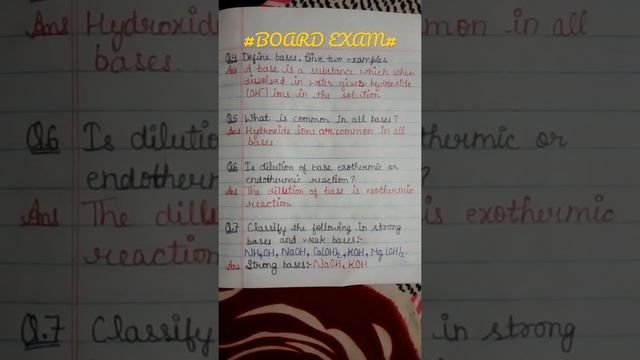 #BOARD EXAM#
Q4 Define bases. Give two examples
Ans A base is a substance which when
dissolved in water gives hydroxide
(OH⁻) ions in the solution
Q5 What is common in all bases?
Ans Hydroxide ions are common in all
bases
Q6 Is dilution of base exothermic or
endothermic reaction?
Ans The dilution of base is exothermic
reaction
Q.7 Classify the following in strong
bases and weak bases:-
NH4OH, NaOH, Ca(OH)2, KOH, Mg(OH)2.
Ans Strong bases:- NaOH, KOH
Ans Hydrox
mon in all
bases.
Q6 Is dilution
thermic or
endother
Ans The dill
is exothermic
reaction
Q.7 Classify
in strong